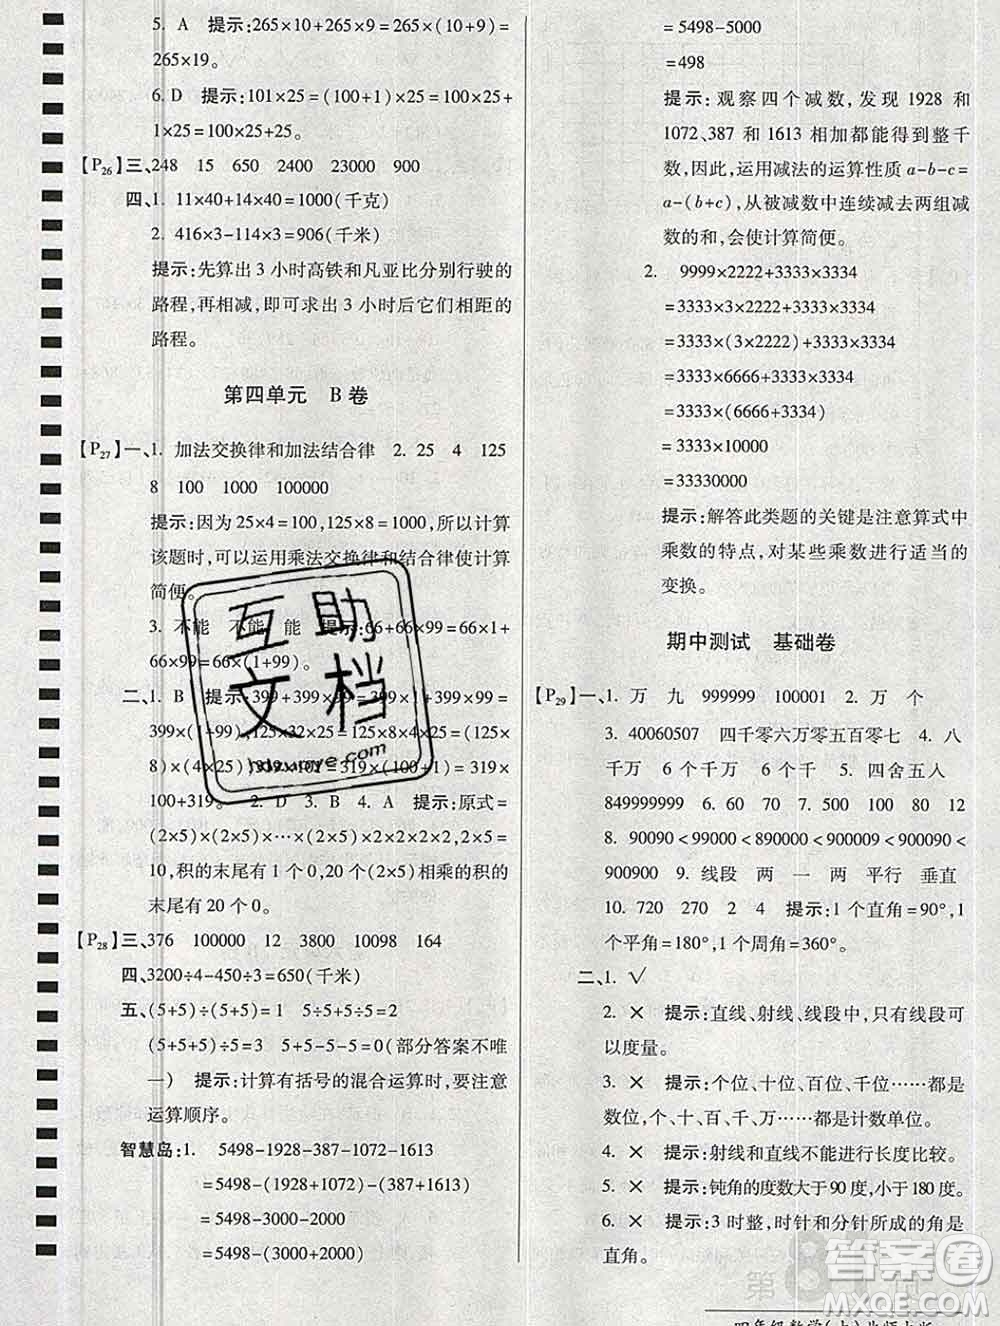 5. A 提示:265×10+265×9=265×(10+9)=
265×19。
6. D 提示:101×25=(100+1)×25=100×25+
1×25=100×25+25。
【P26】三、248 15 650 2400 23000 900
四、1. 11×40+14×40=1000(千克)
2. 416×3-114×3=906(千米)
提示:先算出 3 小时高铁和凡亚比分别行驶的
路程,再相减,即可求出 3 小时后它们相距的
路程。
第四单元 B卷
【P27】一、1. 加法交换律和加法结合律 2. 25 4 125
8 100 1000 100000
提示:因为25×4=100,125×8=1000,所以计算
该题时,可以运用乘法交换律和结合律使计算
简便。
3. 不能 不能 能 提示:66+66×99=66×1+
66×99=66×(1+99)。
二、1. B 提示:399+399×99=399×1+399×99=
399×(1+99),125×32×25=125×8×4×25=(125×
8)×(4×25),319×102=319×(100+1)=319×
100+319。 2. D 3. B 4. A 提示:原式=
(2×5)×(2×5)×⋯×(2×5)×2×2×2×2,2×5=
10,积的末尾有1个0,20个(2×5)相乘的积的
末尾有20个0。
【P28】三、376 100000 12 3800 10098 164
四、3200÷4-450÷3=650(千米)
五、(5+5)÷(5+5)=1 5÷5+5÷5=2
(5+5+5)÷5=3 5+5-5-5=0(部分答案不唯
一) 提示:计算有括号的混合运算时,要注意
运算顺序。
智慧岛:1. 5498-1928-387-1072-1613
=5498-(1928+1072)-(387+1613)
=5498-3000-2000
=5498-(3000+2000)
=5498-5000
=498
提示:观察四个减数,发现 1928 和
1072、387 和 1613 相加都能得到整千
数,因此,运用减法的运算性质 a-b-c=
a-(b+c),从被减数中连续减去两组减
数的和,会使计算简便。
2. 9999×2222+3333×3334
=3333×3×2222+3333×3334
=3333×(3×2222)+3333×3334
=3333×6666+3333×3334
=3333×(6666+3334)
=3333×10000
=33330000
提示:解答此类题的关键是注意算式中
乘数的特点,对某些乘数进行适当的
变换。
期中测试 基础卷
【P29】一、1. 万 九 999999 100001 2. 万 个
3. 40060507 四千零六万零五百零七 4. 八
千万 6个千万 6个千 5. 四舍五入
849999999 6. 60 70 7. 500 100 80 12
8. 90090<99000<890000<900009<900090<
900900 9. 线段 两 一 两 平行 垂直
10. 720 270 2 4 提示:1个直角=90°,1
个平角=180°,1个周角=360°。
二、1. √
2. × 提示:直线、射线、线段中,只有线段可
以度量。
3. × 提示:个位、十位、百位、千位……都是
数位,个、十、百、千、万……都是计数单位。
4. × 提示:射线和直线不能进行长度比较。
5. × 提示:钝角的度数大于90度,小于180度。
6. × 提示:3时整,时针和分针所成的角是
直角。
互助
文档
hdzuoye.com
答案圈
MXQE.COM
四年级数学(上)北师大版